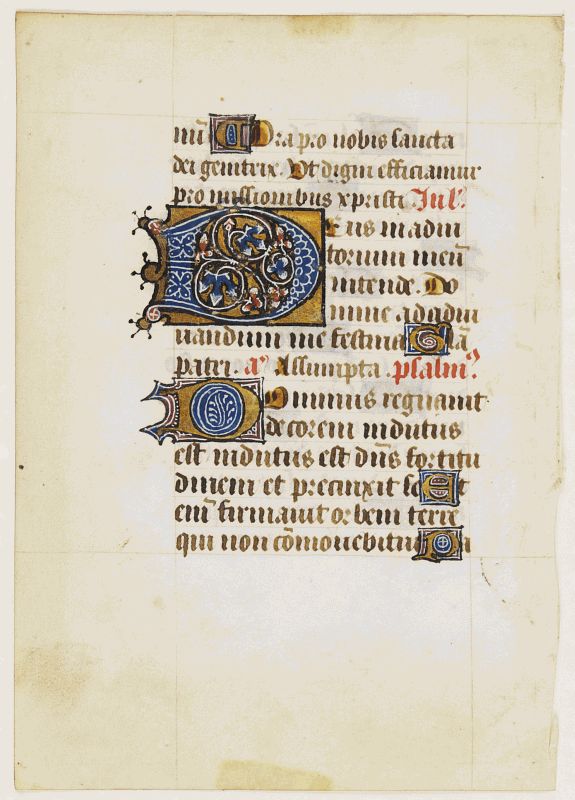 mū U Ora pro nobis sancta
dei genitrix. Vt digni efficiamur
promissionibus xpristi Jnl'.
Deus in adiu
torium meū
intende. Do
mine ad adiu
uandum me festina Glā
patri. a' Assumpta. psalm'.
Dominus regnauit
decorem indutus
est indutus est dn̄s fortitu
dinem et precinxit se Et
enī firmauit orbem terre
qui non cōmouebitur P